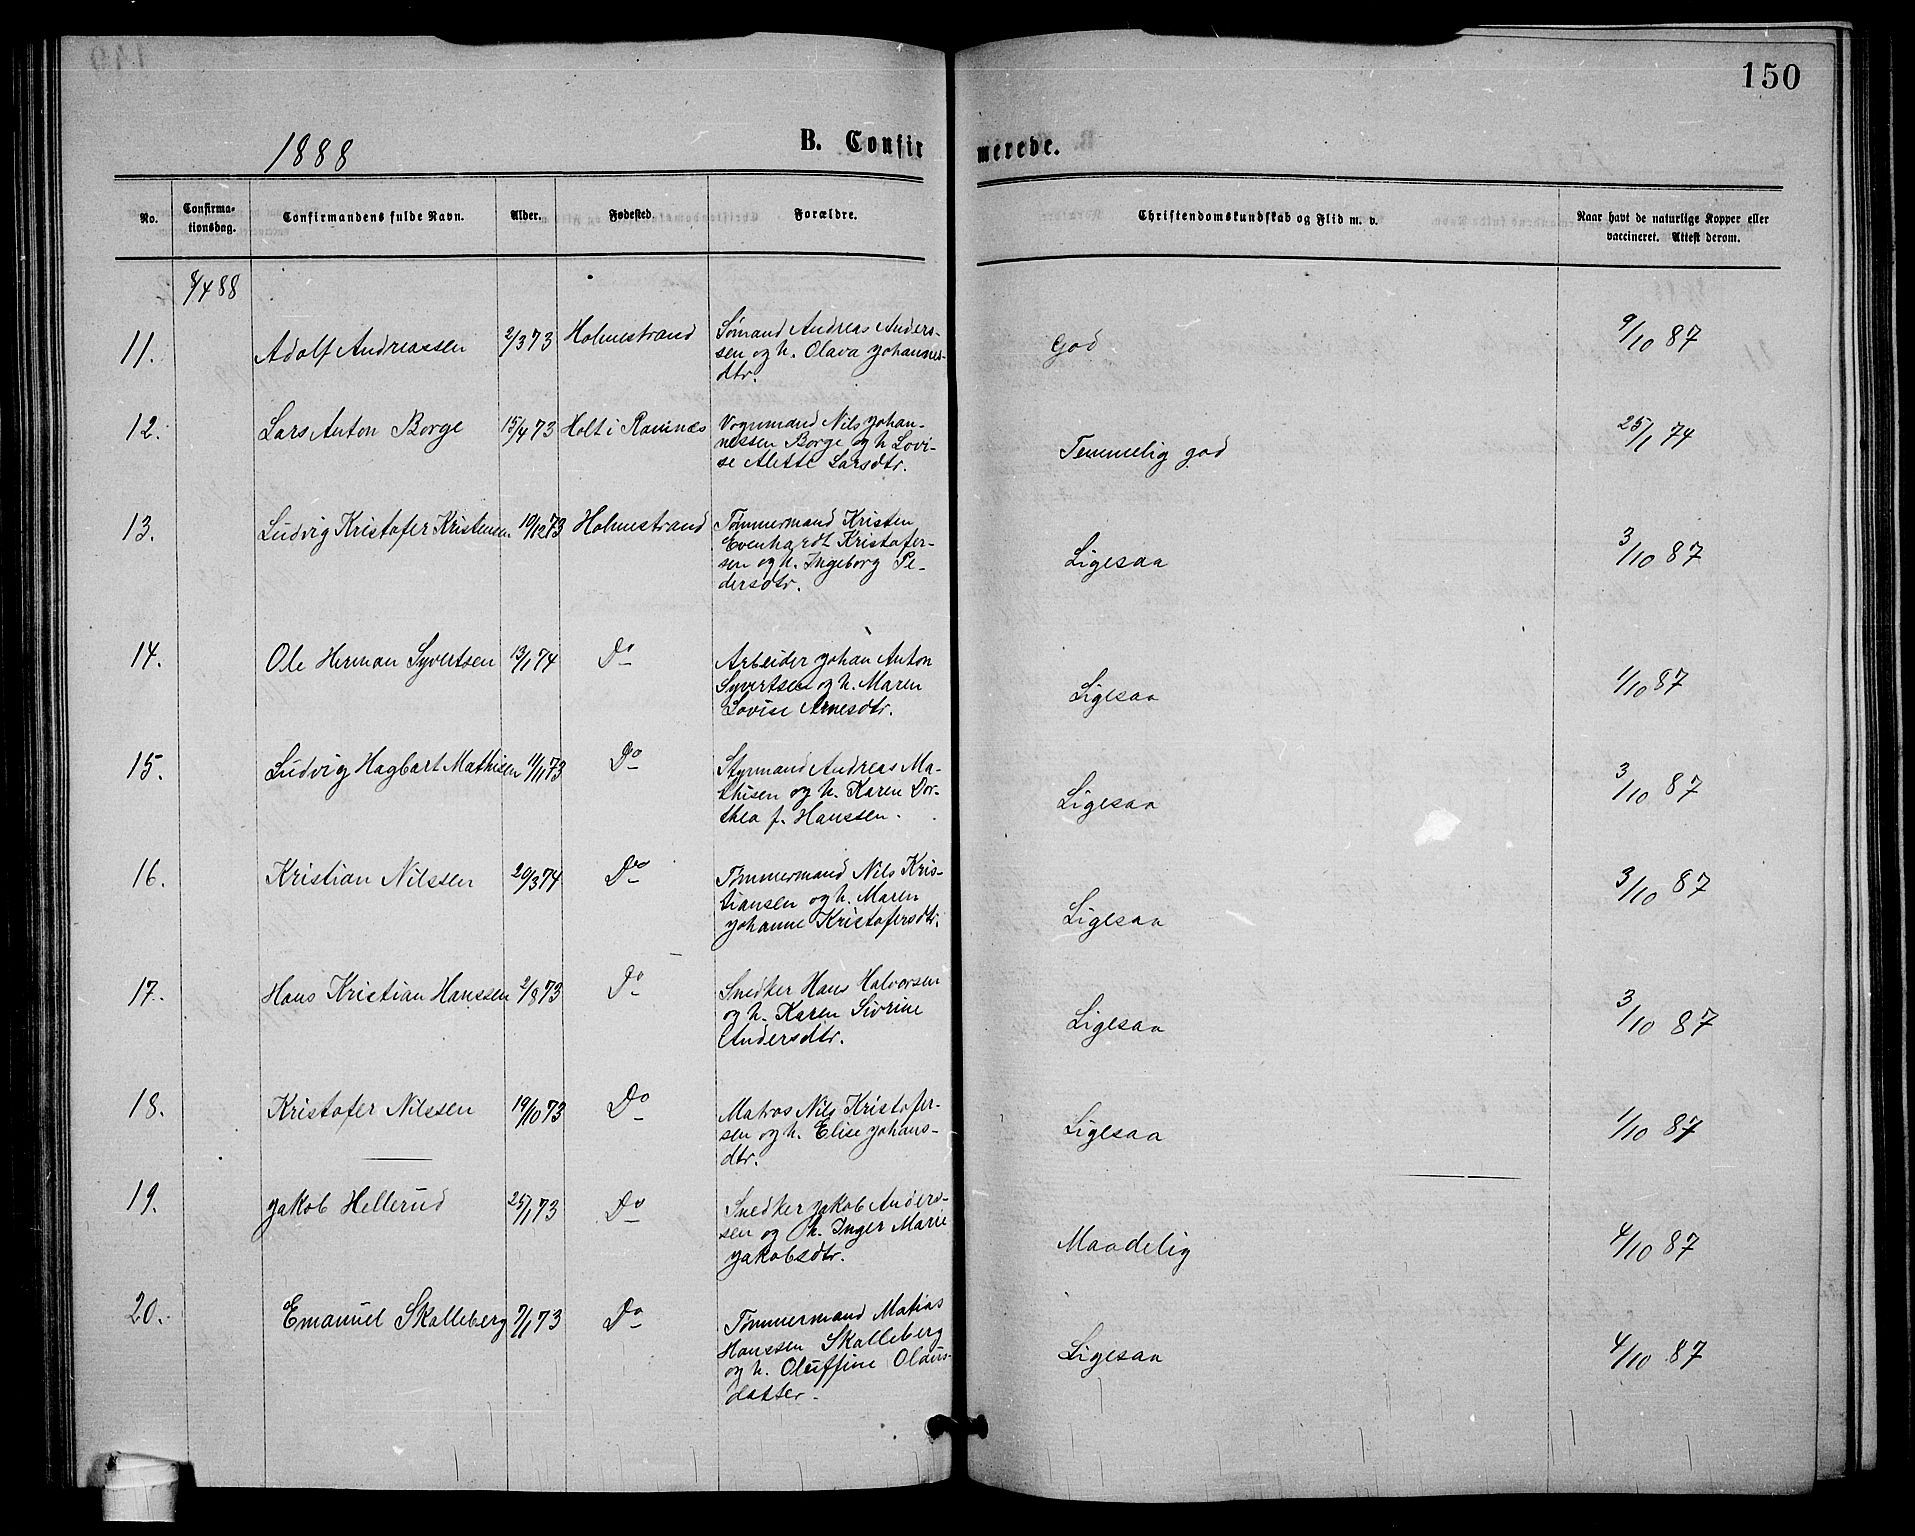 150
1888 B. Confirmerede.
No. Confirmationsdag. Confirmandens fulde Navn. Alder. Fødested. Forældre. Christendomskundskab og Flid m. v. Naar havt de naturlige Kopper eller vaccineret. Attest derom.
8/4 88
11. Adolf Andreassen 2/3 73 Holmestrand Sømand Andreas Anders- God 9/10 87
sen og h. Olava Johannes-
dtr.
12. Lars Anton Borge 15/4 73 Holt i Ramnæs Vognmand Nils Johan- Temmelig god 25/1 74
nessen Borge og h. Lovi-
se Alette Larsdtr.
13. Ludvig Kristofer Kristensen 10/12 73 Holmestrand Tømmermand Kristen Ligesaa 3/10 87
Evenhardt Kristofer-
sen og h. Ingeborg Pe-
dersdtr.
14. Ole Herman Syvertsen 13/1 74 Do Arbeider Johan Anton Ligesaa 1/10 87
Syvertsen og h. Maren
Lovise Arnesdtr.
15. Ludvig Hagbart Mathisen 11/11 73 Do Styrmand Andreas Ma- Ligesaa 3/10 87
thisen og h. Karen Dor-
thea f. Hanssen.
16. Kristian Nilssen 20/3 74 Do Tømmermand Nils Kris- Ligesaa 3/10 87
tiansen og h. Maren
Johanne Kristofersdtr.
17. Hans Kristian Hanssen 2/8 73 Do Snedker Hans Halvorsen Ligesaa 3/10 87
og h. Karen Sivrine
Andersdtr.
18. Kristofer Nilssen 19/10 73 Do Matros Nils Kristofer- Ligesaa 1/10 87
sen og h. Elise Johans-
dtr.
19. Jakob Hellerud 25/1 73 Do Snedker Jakob Anders- Maadelig 4/10 87
sen og h. Inger Marie
Jakobsdtr.
20. Emanuel Skalleberg 7/1 73 Do Tømmermand Matias Ligesaa 4/10 87
Hanssen Skalleberg
og h. Oluffine Olaus-
datter.